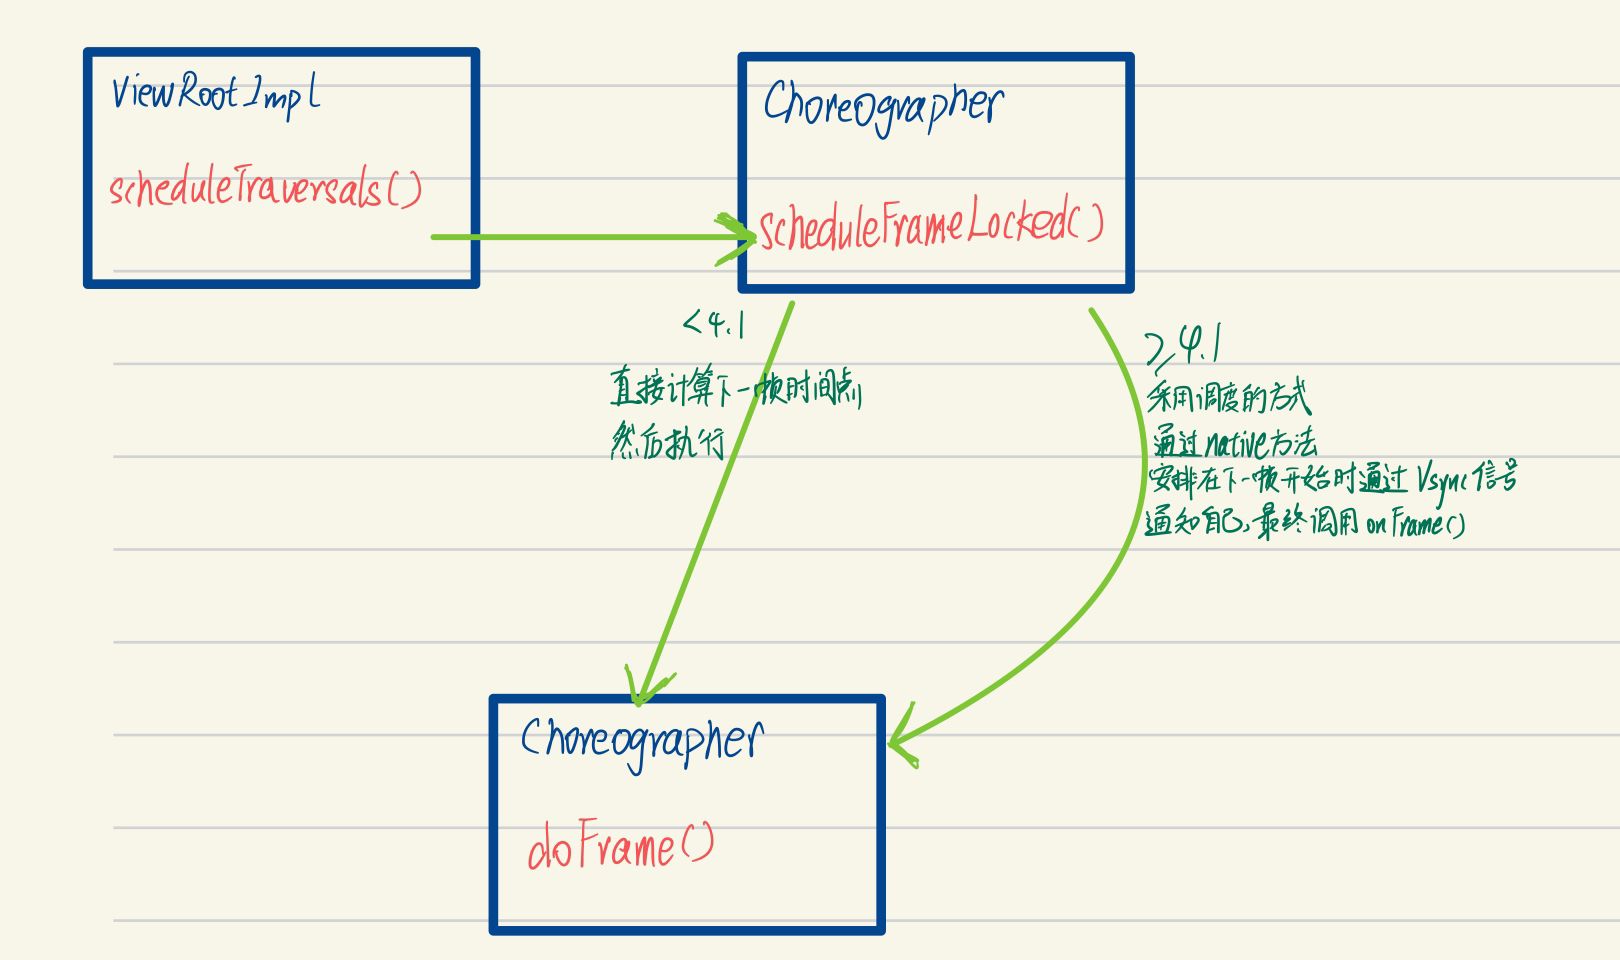 ViewRootImpl
scheduleTraversals()
Choreographer
scheduleFrameLocked()
<4.1
直接计算下一帧时间点,
然后执行
≥4.1
采用调度的方式
通过native方法
安排在下一帧开始时通过Vsync信号
通知自己,最终调用onFrame()
Choreographer
doFrame()